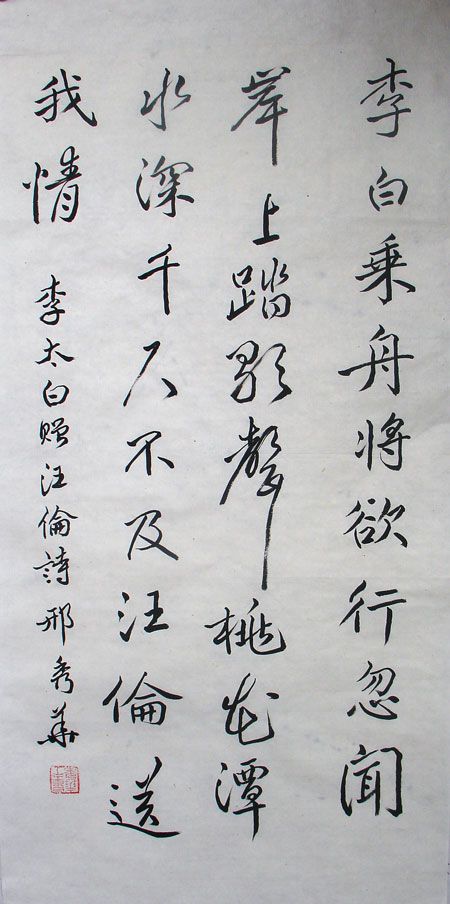 李白乘舟將欲行忽聞
岸上踏歌聲桃花潭
水深千尺不及汪倫送
我情
李太白贈汪倫詩邢秀華